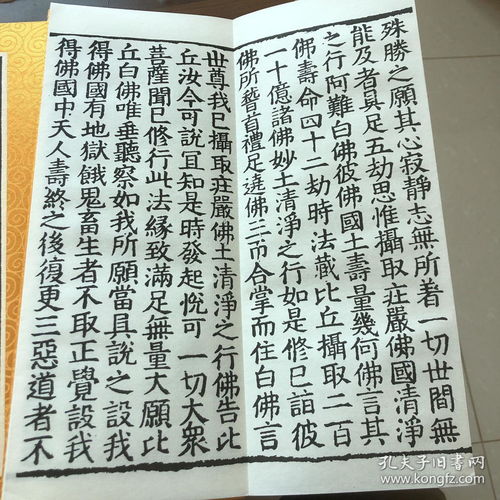 殊勝之願其心寂静志無所着一切世間無
能及者具足五劫思惟攝取莊嚴佛國清淨
之行阿難白佛彼佛國土壽量幾何佛言其
佛壽命四十二劫時法藏比丘攝取二百
一十億諸佛妙土清淨之行如是修已詣彼
佛所稽首禮足遶佛三帀合掌而住白佛言
世尊我已攝取莊嚴佛土清淨之行佛告比
丘汝今可說宜知是時發起悅可一切大衆
菩薩聞已修行此法緣致滿足無量大願比
丘白佛唯垂聽察如我所願當具說之設我
得佛國有地獄餓鬼畜生者不取正覺設我
得佛國中天人壽終之後復更三惡道者不
孔夫子旧书网
www.kongfz.com